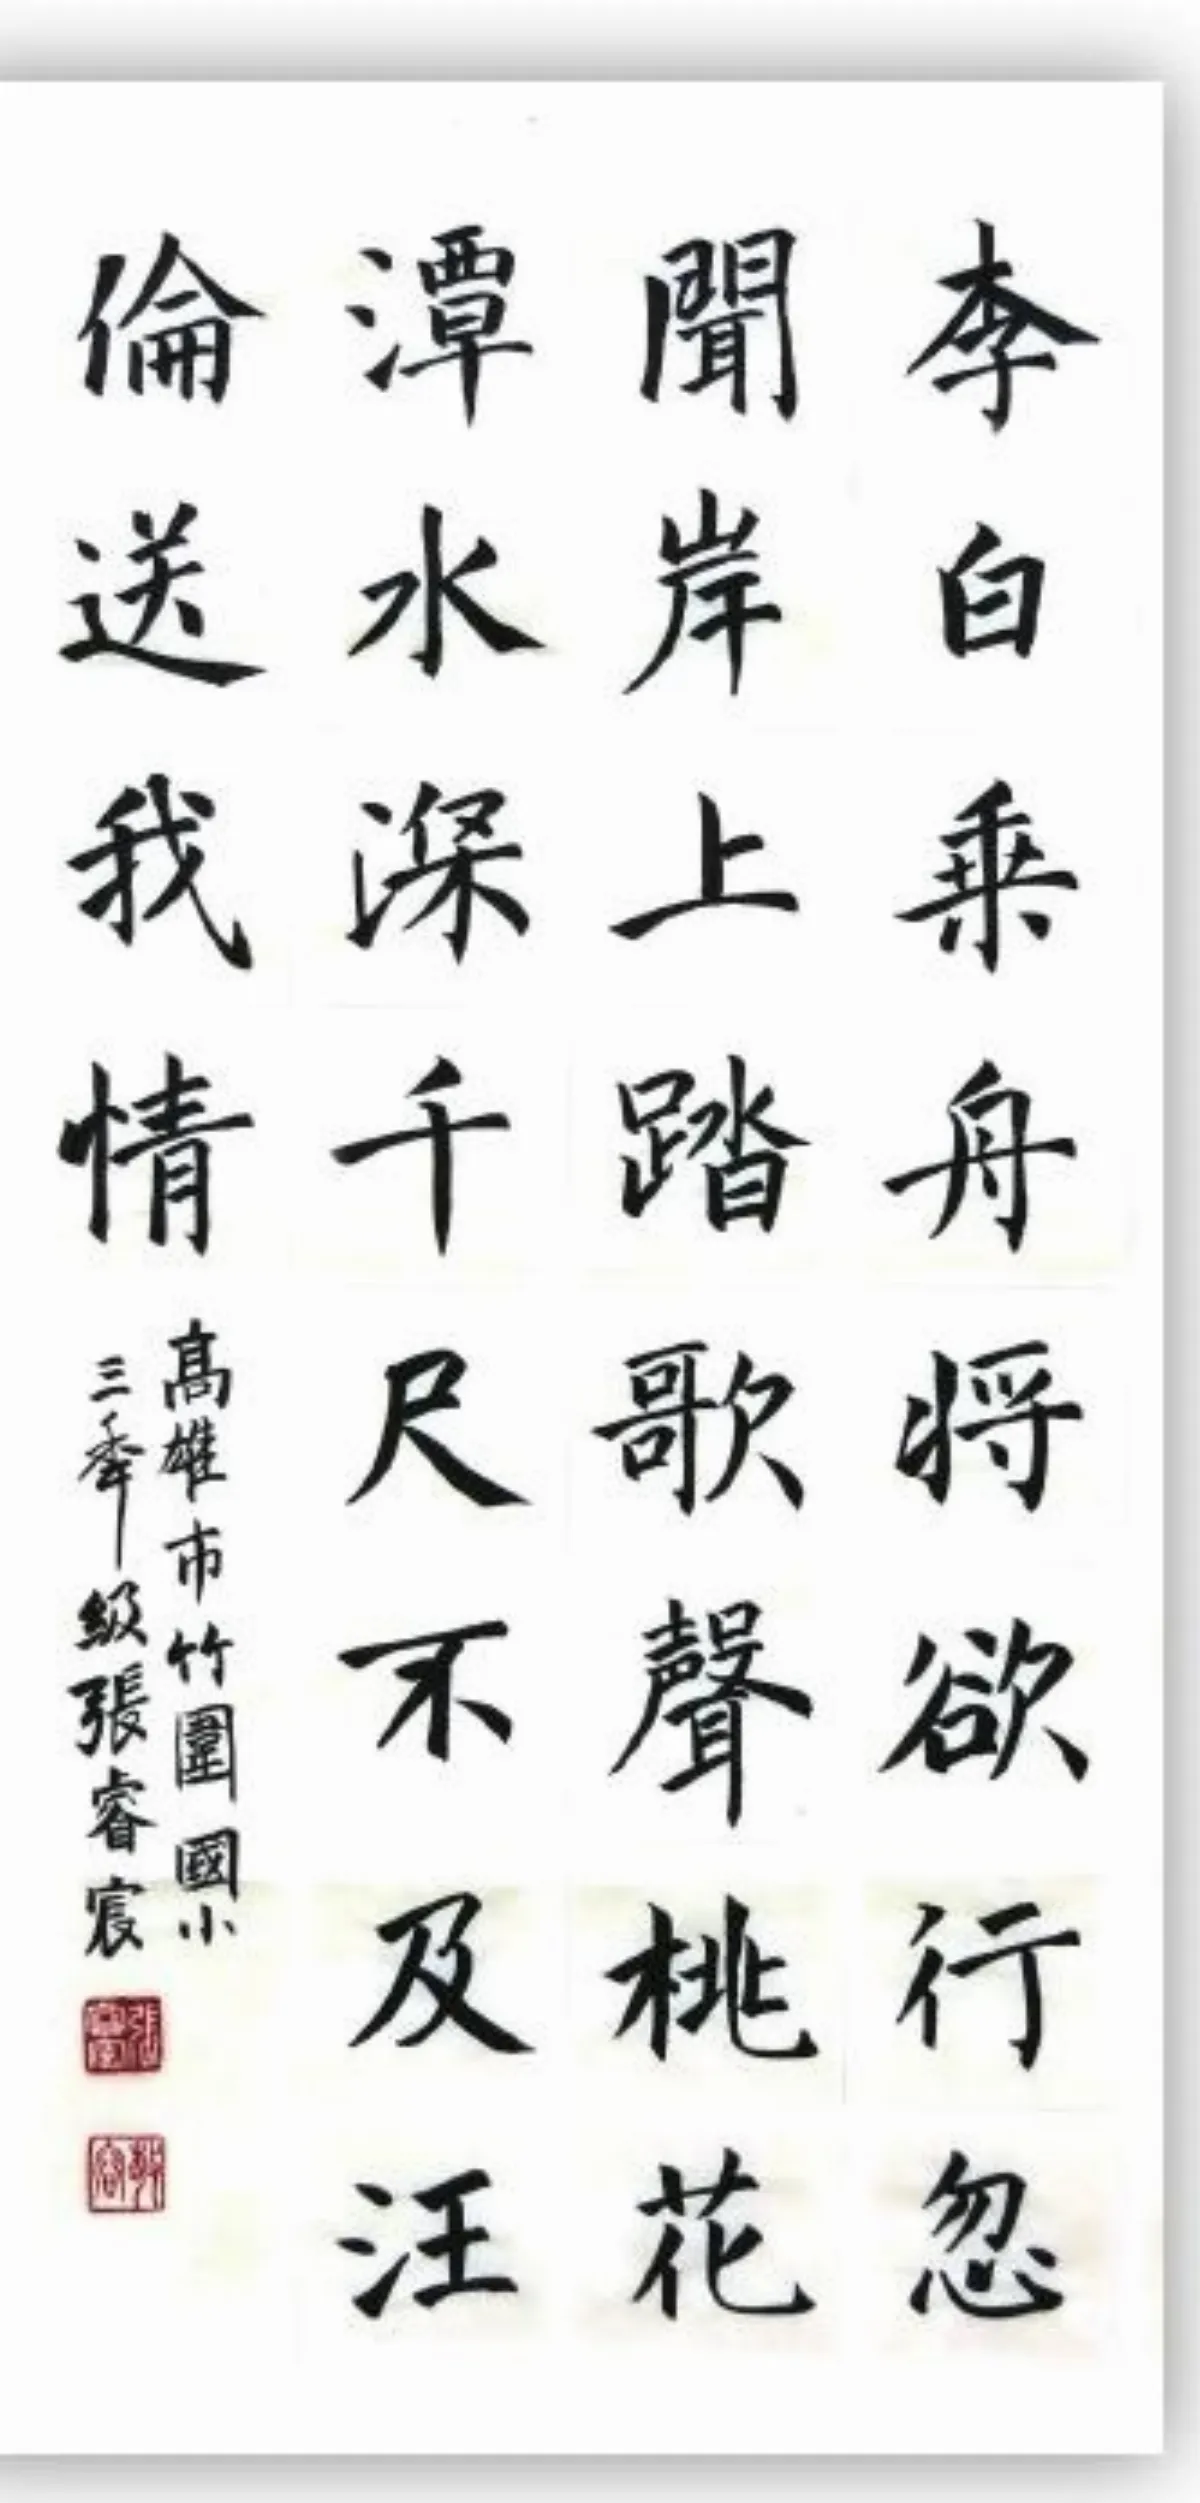 李白乘舟將欲行忽
聞岸上踏歌聲桃花
潭水深千尺不及汪
倫送我情
高雄市竹圍國小
三年級張睿宸